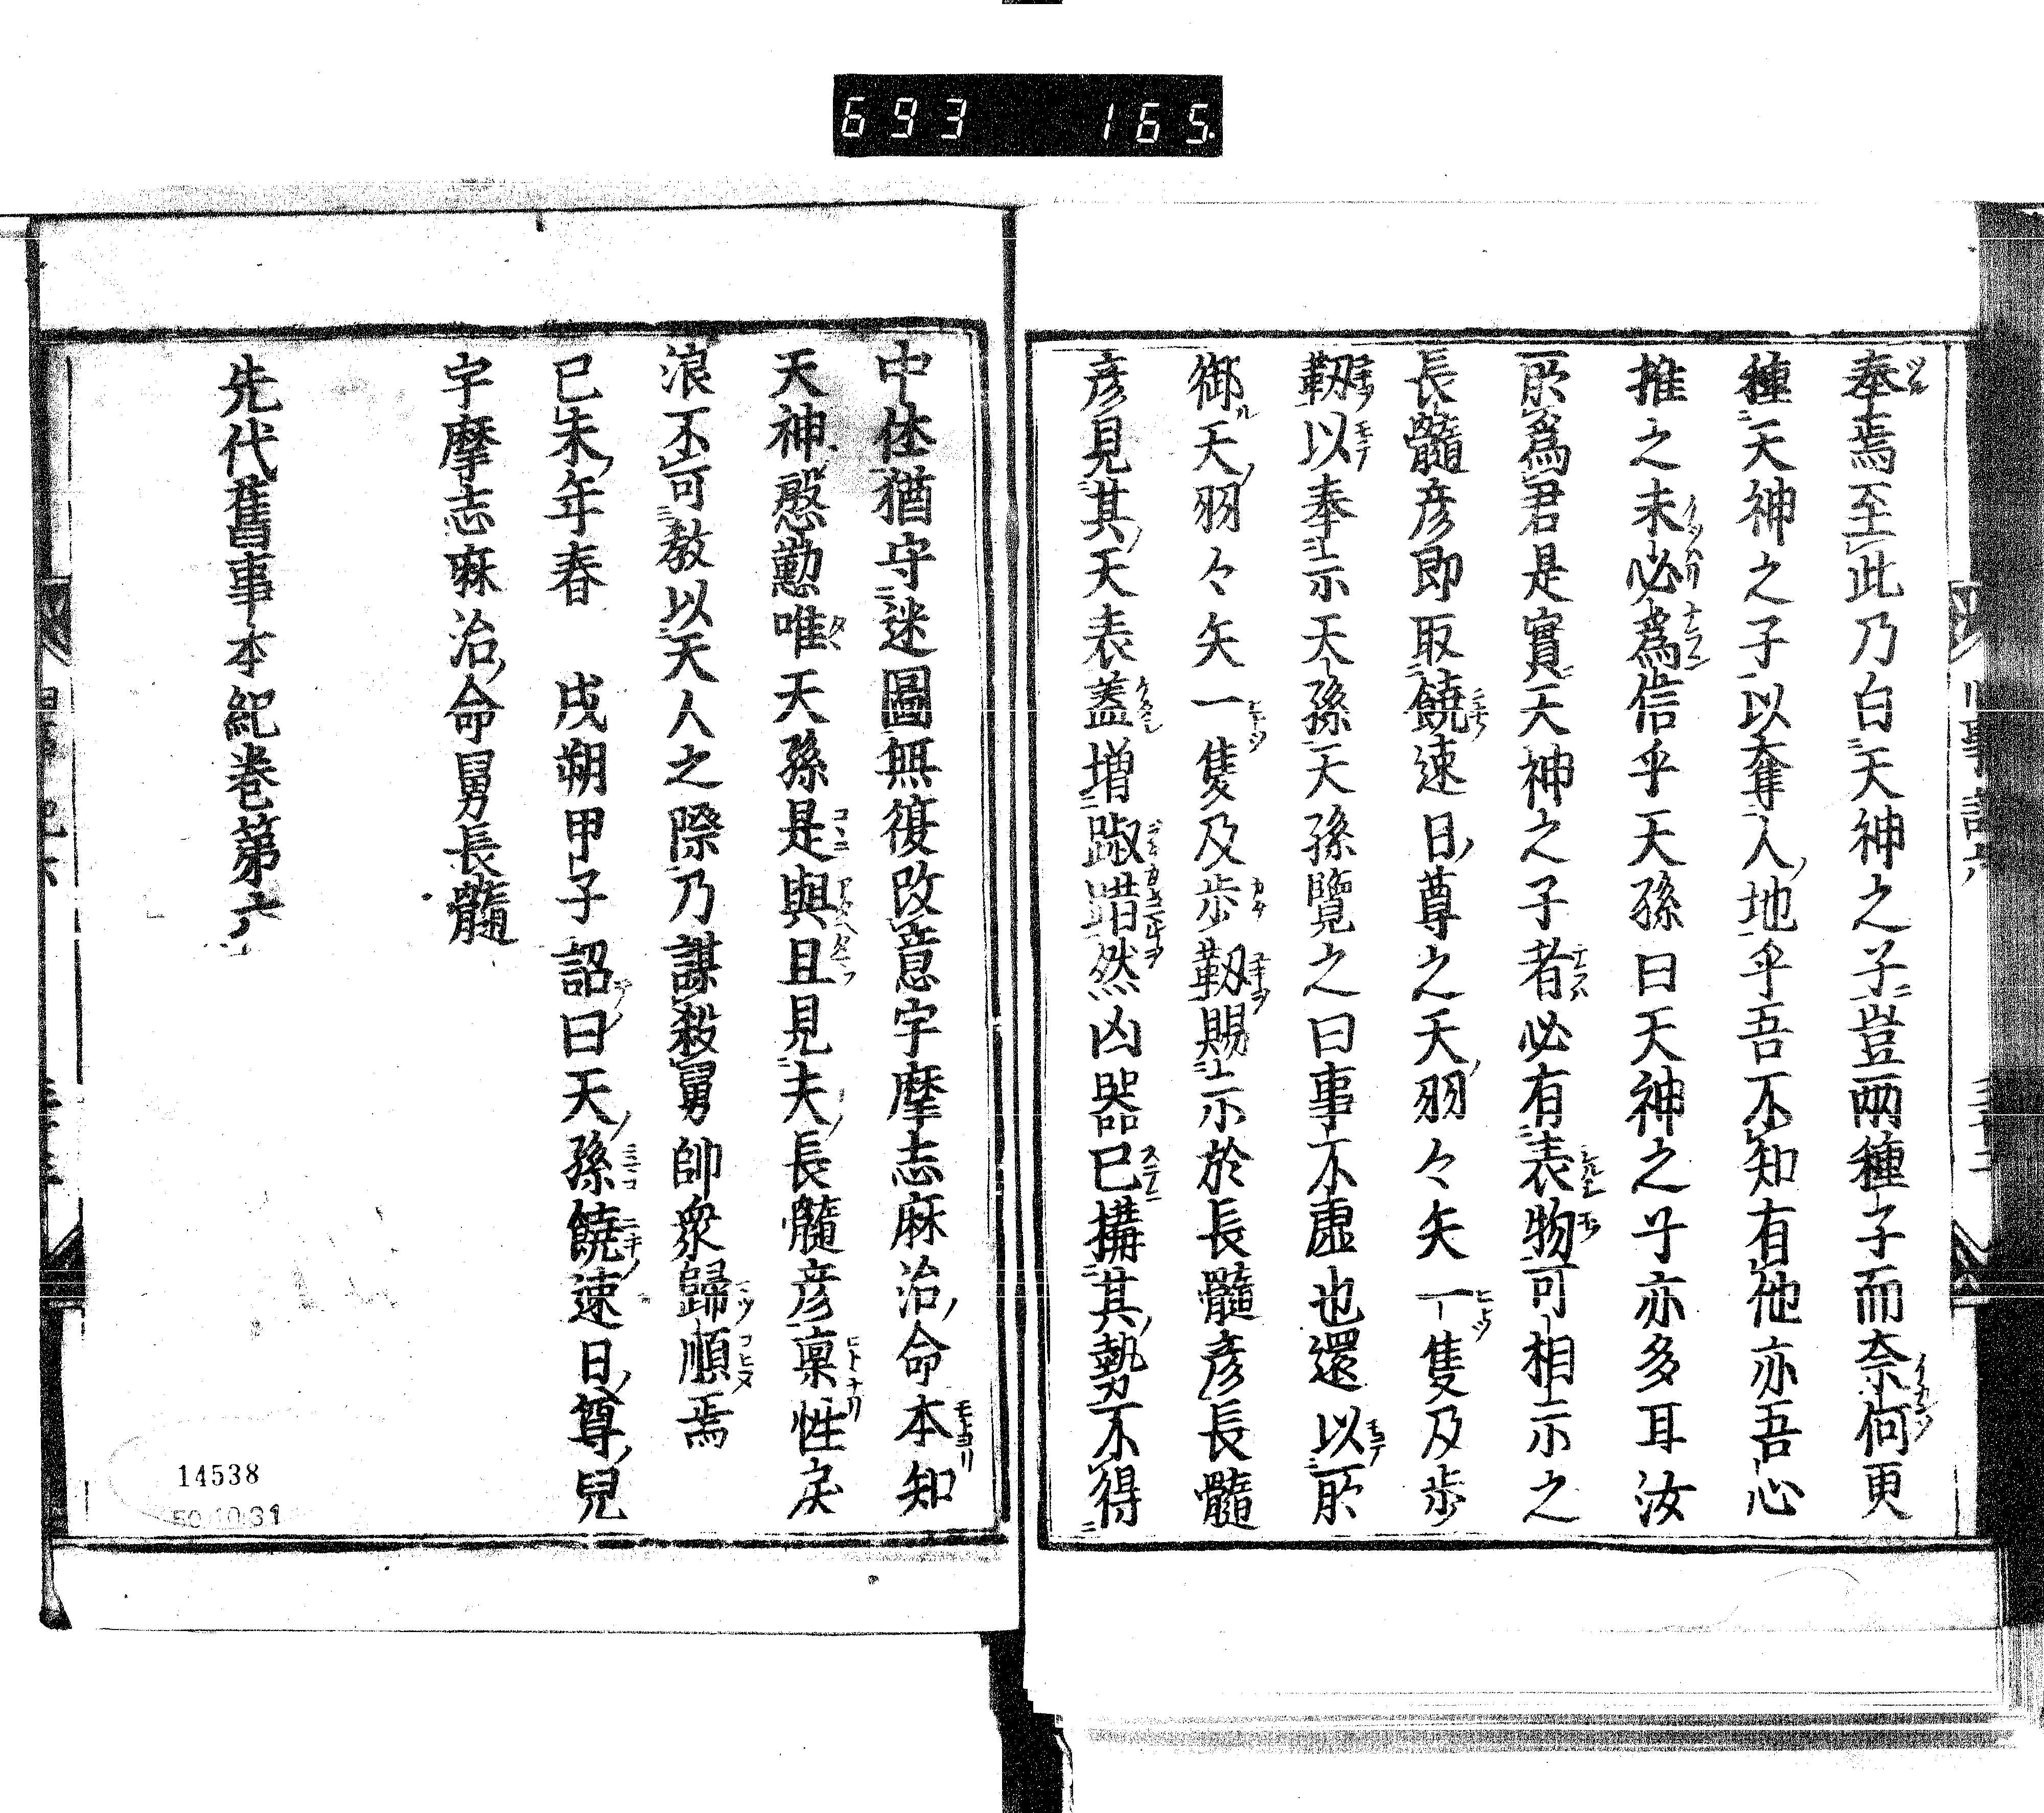 693 165
奉焉至此乃白天神之子豈兩種子而奈何更
種天神之子以奪人地乎吾不知有他亦吾心
推之未必爲信乎天孫曰天神之子亦多耳汝
所爲君是實天神之子者必有表物可相示之
長髓彦即取饒速日尊之天羽々矢一隻及歩
靫以奉示天孫天孫覽之曰事不虛也還以所
御天羽々矢一隻及歩靫賜示於長髓彦長髓
彦見其天表益増踧踖然凶器已構其勢不得
中休猶守迷圖無復改意宇摩志麻治命本知
天神慇懃唯天孫是與且見夫長髓彦稟性戾
浪不可教以天人之際乃謀殺舅帥衆歸順焉
已未年春 戊朔甲子詔曰天孫饒速日尊兒
宇摩志麻治命舅長髓
先代舊事本紀巻第六
14538
50.10.31